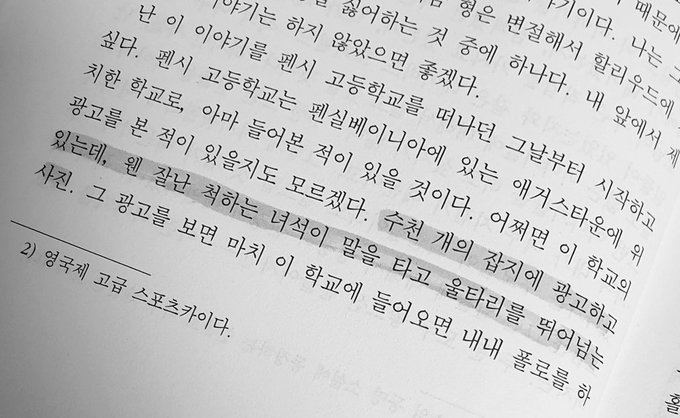 때문에
이다. 나는 그
형은 변절해서 할리우드에
싫어하는 것 중에 하나다. 내 앞에서 제
야기는 하지 않았으면 좋겠다.
난 이 이야기를 펜시 고등학교를 떠나던 그날부터 시작하고
싶다. 펜시 고등학교는 펜실베이니아에 있는 애거스타운에 위
치한 학교로, 아마 들어본 적이 있을 것이다. 어쩌면 이 학교의
광고를 본 적이 있을지도 모르겠다. 수천 개의 잡지에 광고하고
있는데, 웬 잘난 척하는 녀석이 말을 타고 울타리를 뛰어넘는
사진. 그 광고를 보면 마치 이 학교에 들어오면 내내 폴로를 하
2) 영국제 고급 스포츠카이다.